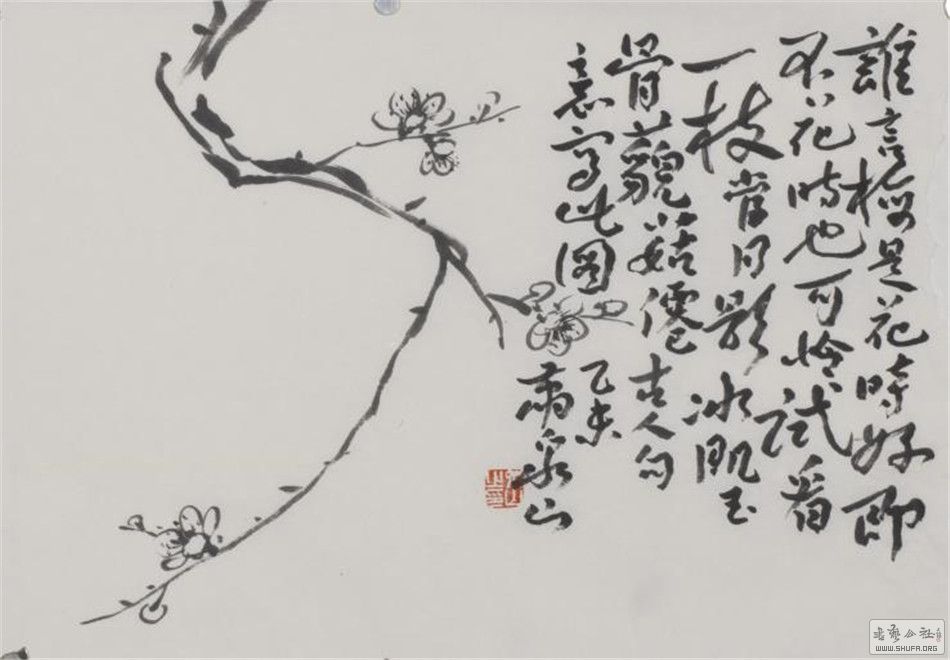 誰言梅是花時好即
不花時也可憐試看
一枝當月影冰肌玉
骨藐姑僊古人句
意寫此圖乙未
泉山
書藝公社
WWW.SHUFA.ORG